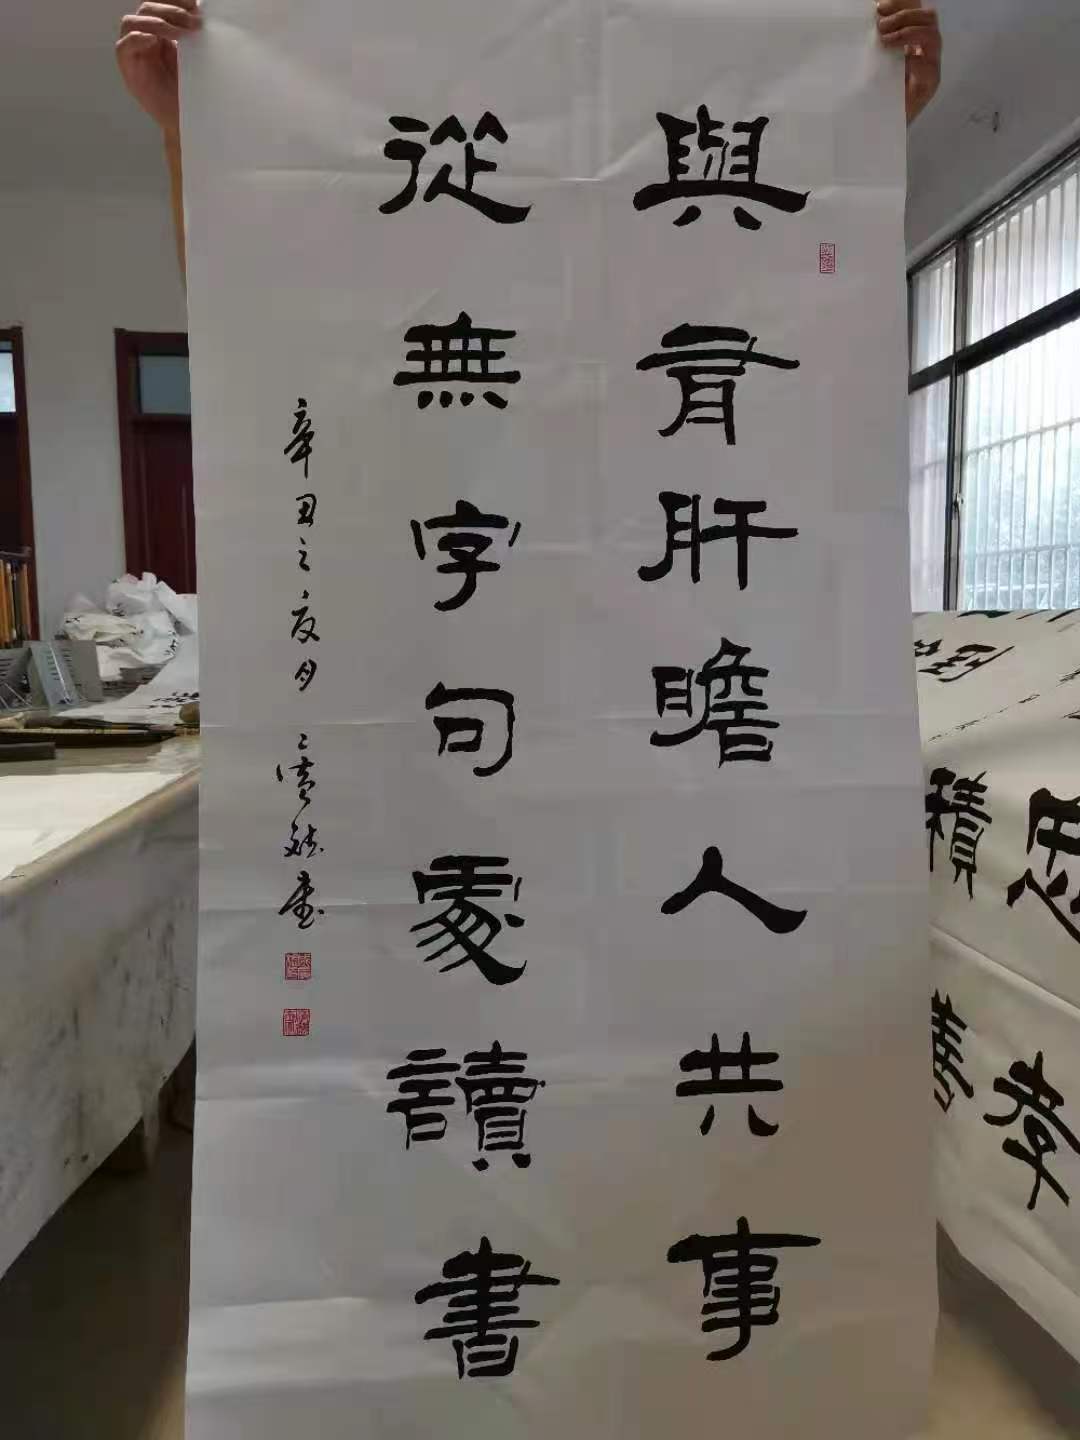 與有肝膽人共事
從無字句處讀書
辛丑之夏月
積
善
忠
孝